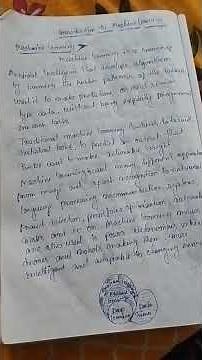 Introduction to Machine Learning
Machine Learning
Machine Learning is a branch of
Artificial Intelligence that develops algorithms
by learning the hidden patterns of the datasets
used it to make predictions on new similar
type data, without being explicitly programmed
for each task.
Traditional machine learning combines data with
statistical tools to predict an output that
can be used to make actionable insights.
Machine learning is used in many different applications
from image and speech recognition to natural
language processing, recommendation systems,
fraud detection, portfolio optimization, automated
task and so on. Machine learning models
are also used to power autonomous vehicles,
drones and robots, making them more
intelligent and adaptable to changing environments
Deep
Learning
Data
Science